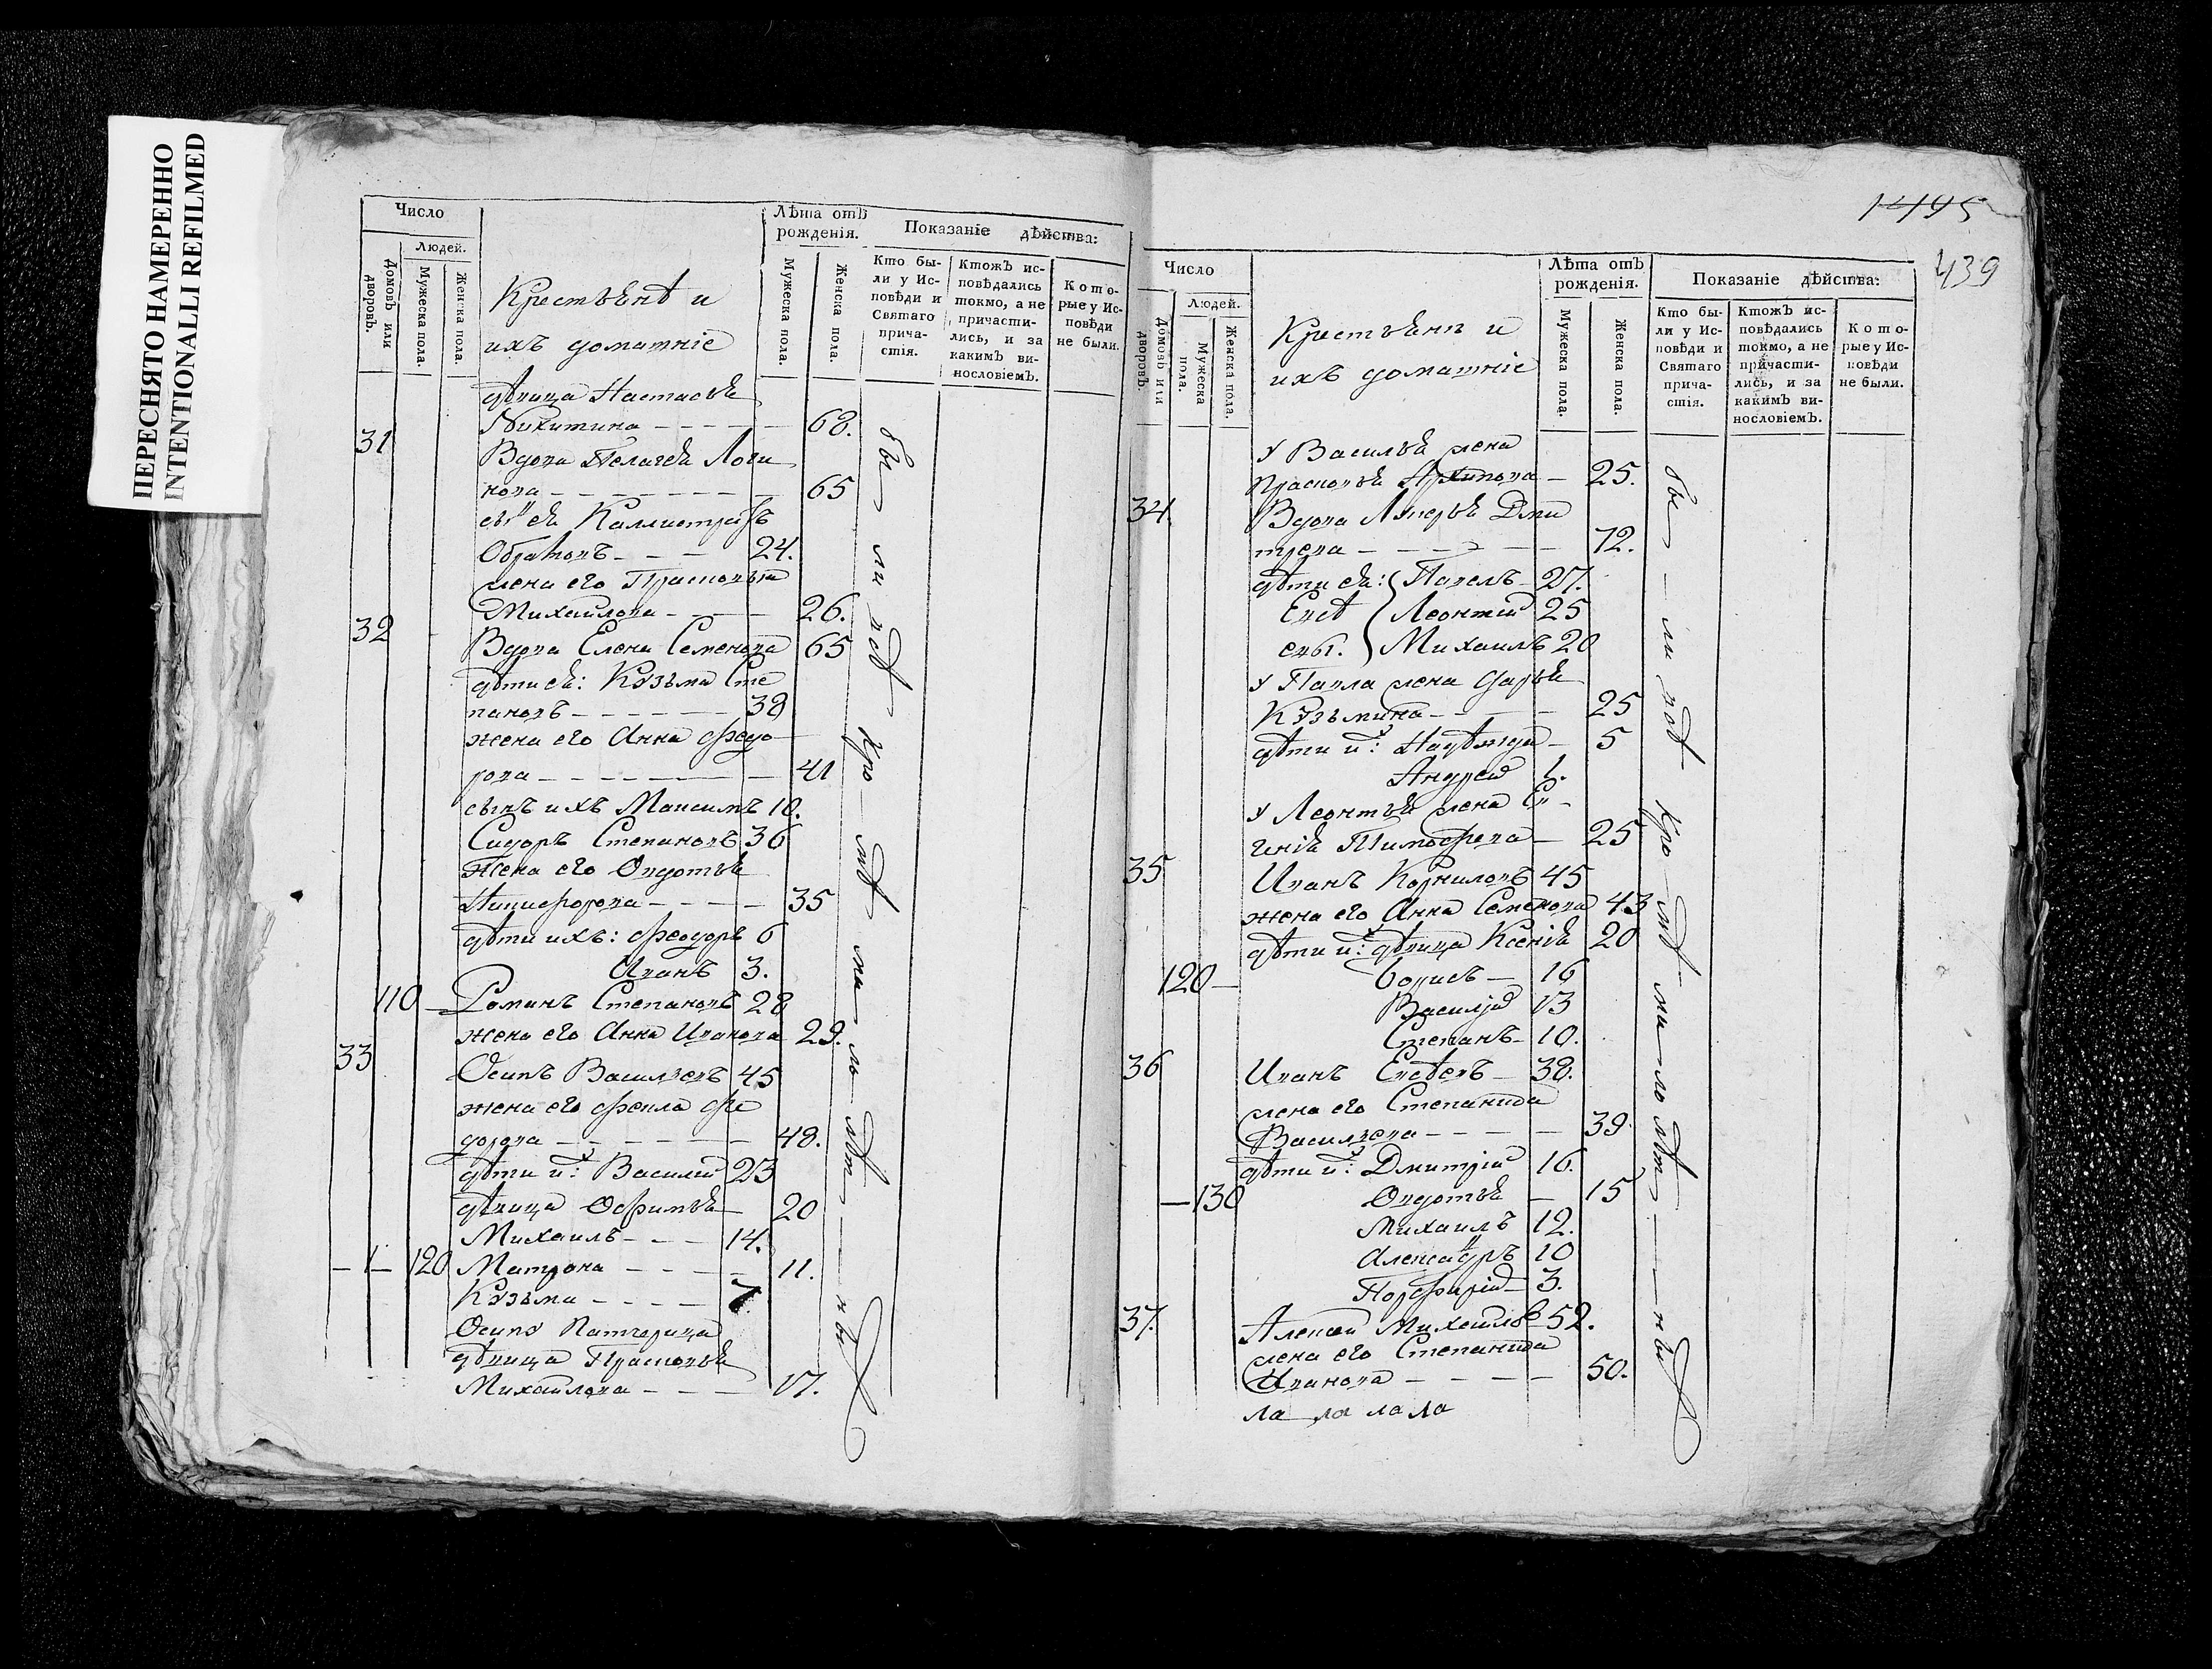 ПЕРЕСНЯТО НАМЕРЕННО
INTENTIONALLI REFILMED
Число
Людей.
Домовъ или дворовъ.
Мужеска пола.
Женска пола.
Крестьянѣ и
ихъ домашніе
Лѣта отъ рожденія.
Мужеска пола.
Женска пола.
Показаніе дѣйства:
Кто были у Исповѣди и Святаго причастія.
Ктожъ исповѣдались токмо, а не причастились, и за какимъ винословіемъ.
Которые у Исповѣди не были.
дѣвица Настасья
Никитина 68.
31 Вдова Пелагея Логи
нова 65
сынъ ея Каллистратъ
24.
жена его Прасковья
Михайлова 26.
32 Вдова Елена Семенова 65
дѣти ея: Кузьма Сте
пановъ 38
жена его Анна Федо
рова 41
сынъ ихъ Максимъ 10.
Сидоръ Степановъ 36
Жена его Овдотья
Никифорова 35
дѣти ихъ: Феодоръ 6
Иванъ 3.
110 Романъ Степановъ 28
жена его Анна Иванова 29.
33 Осипъ Васильевъ 45
жена его Фекла Фе
дорова 48.
дѣти их: Василій 23
дѣвица Офимья 20
Михаилъ 14.
1 120 Матрона 11.
Кузьма 7
Осипу
дѣвица Прасковья
Михайлова 17.
бы ли всѣ кро мѣ ма ло лѣт ны
1495
439
Число
Людей.
Домовъ или дворовъ.
Мужеска пола.
Женска пола.
Крестьянъ и
ихъ домашніе
Лѣта отъ рожденія.
Мужеска пола.
Женска пола.
Показаніе дѣйства:
Кто были у Исповѣди и Святаго причастія.
Ктожъ исповѣдались токмо, а не причастились, и за какимъ винословіемъ.
Которые у Исповѣди не были.
У Василья жена
Прасковья Архипова 25.
34. Вдова Лукерья Дми
трева 72.
дѣти ея: Павелъ 27.
Евсѣ Леонтій 25
евы. Михаилъ 20
У Павла жена Дарья
Кузьмина 25
дѣти их: Надѣжда 5
Андрей 1.
У Леонтья жена Ев
генія Тимофеева 25
35 Иванъ Корниловъ 45
жена его Анна Семенова 43
дѣти их: дѣвица Ксенія 20
120 Борисъ 16
Василій 13
Степанъ 10.
36 Иванъ Евсѣевъ 38.
жена его Степанида
Васильева 39
дѣти их: Дмитрій 16.
130 Овдотья 15
Михаилъ 12.
Александръ 10
Порфирій 3.
37. Алексѣй Михайловъ 52.
жена его Степанида
Иванова 50.
ла ла ла ла
бы ли всѣ кро мѣ ма ло лѣт ны